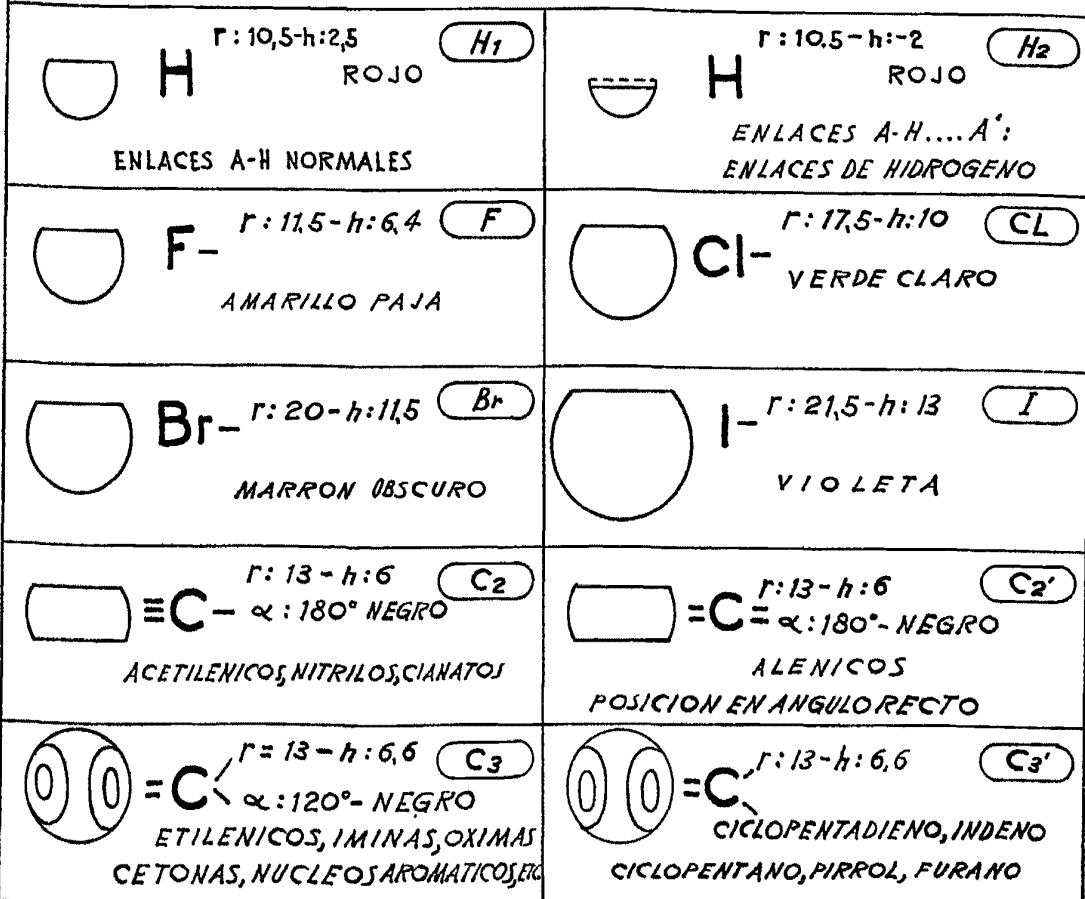 r: 10,5-h:2,5 H1
H ROJO
ENLACES A-H NORMALES
r: 10.5-h:-2 H2
H ROJO
ENLACES A-H....A':
ENLACES DE HIDROGENO
F- r: 11,5-h: 6,4 F
AMARILLO PAJA
Cl- r: 17,5-h: 10 CL
VERDE CLARO
Br- r: 20-h: 11,5 Br
MARRON OBSCURO
I- r: 21,5-h: 13 I
VIOLETA
r: 13-h: 6 C2
≡C- α: 180° NEGRO
ACETILENICOS, NITRILOS, CIANATOS
r: 13-h: 6 C2'
=C= α: 180°- NEGRO
ALENICOS
POSICION EN ANGULO RECTO
r= 13-h: 6,6 C3
=C< α: 120°- NEGRO
ETILENICOS, IMINAS, OXIMAS
CETONAS, NUCLEOS AROMATICOS, ETC
r: 13-h: 6,6 C3'
=C
CICLOPENTADIENO, INDENO
CICLOPENTANO, PIRROL, FURANO